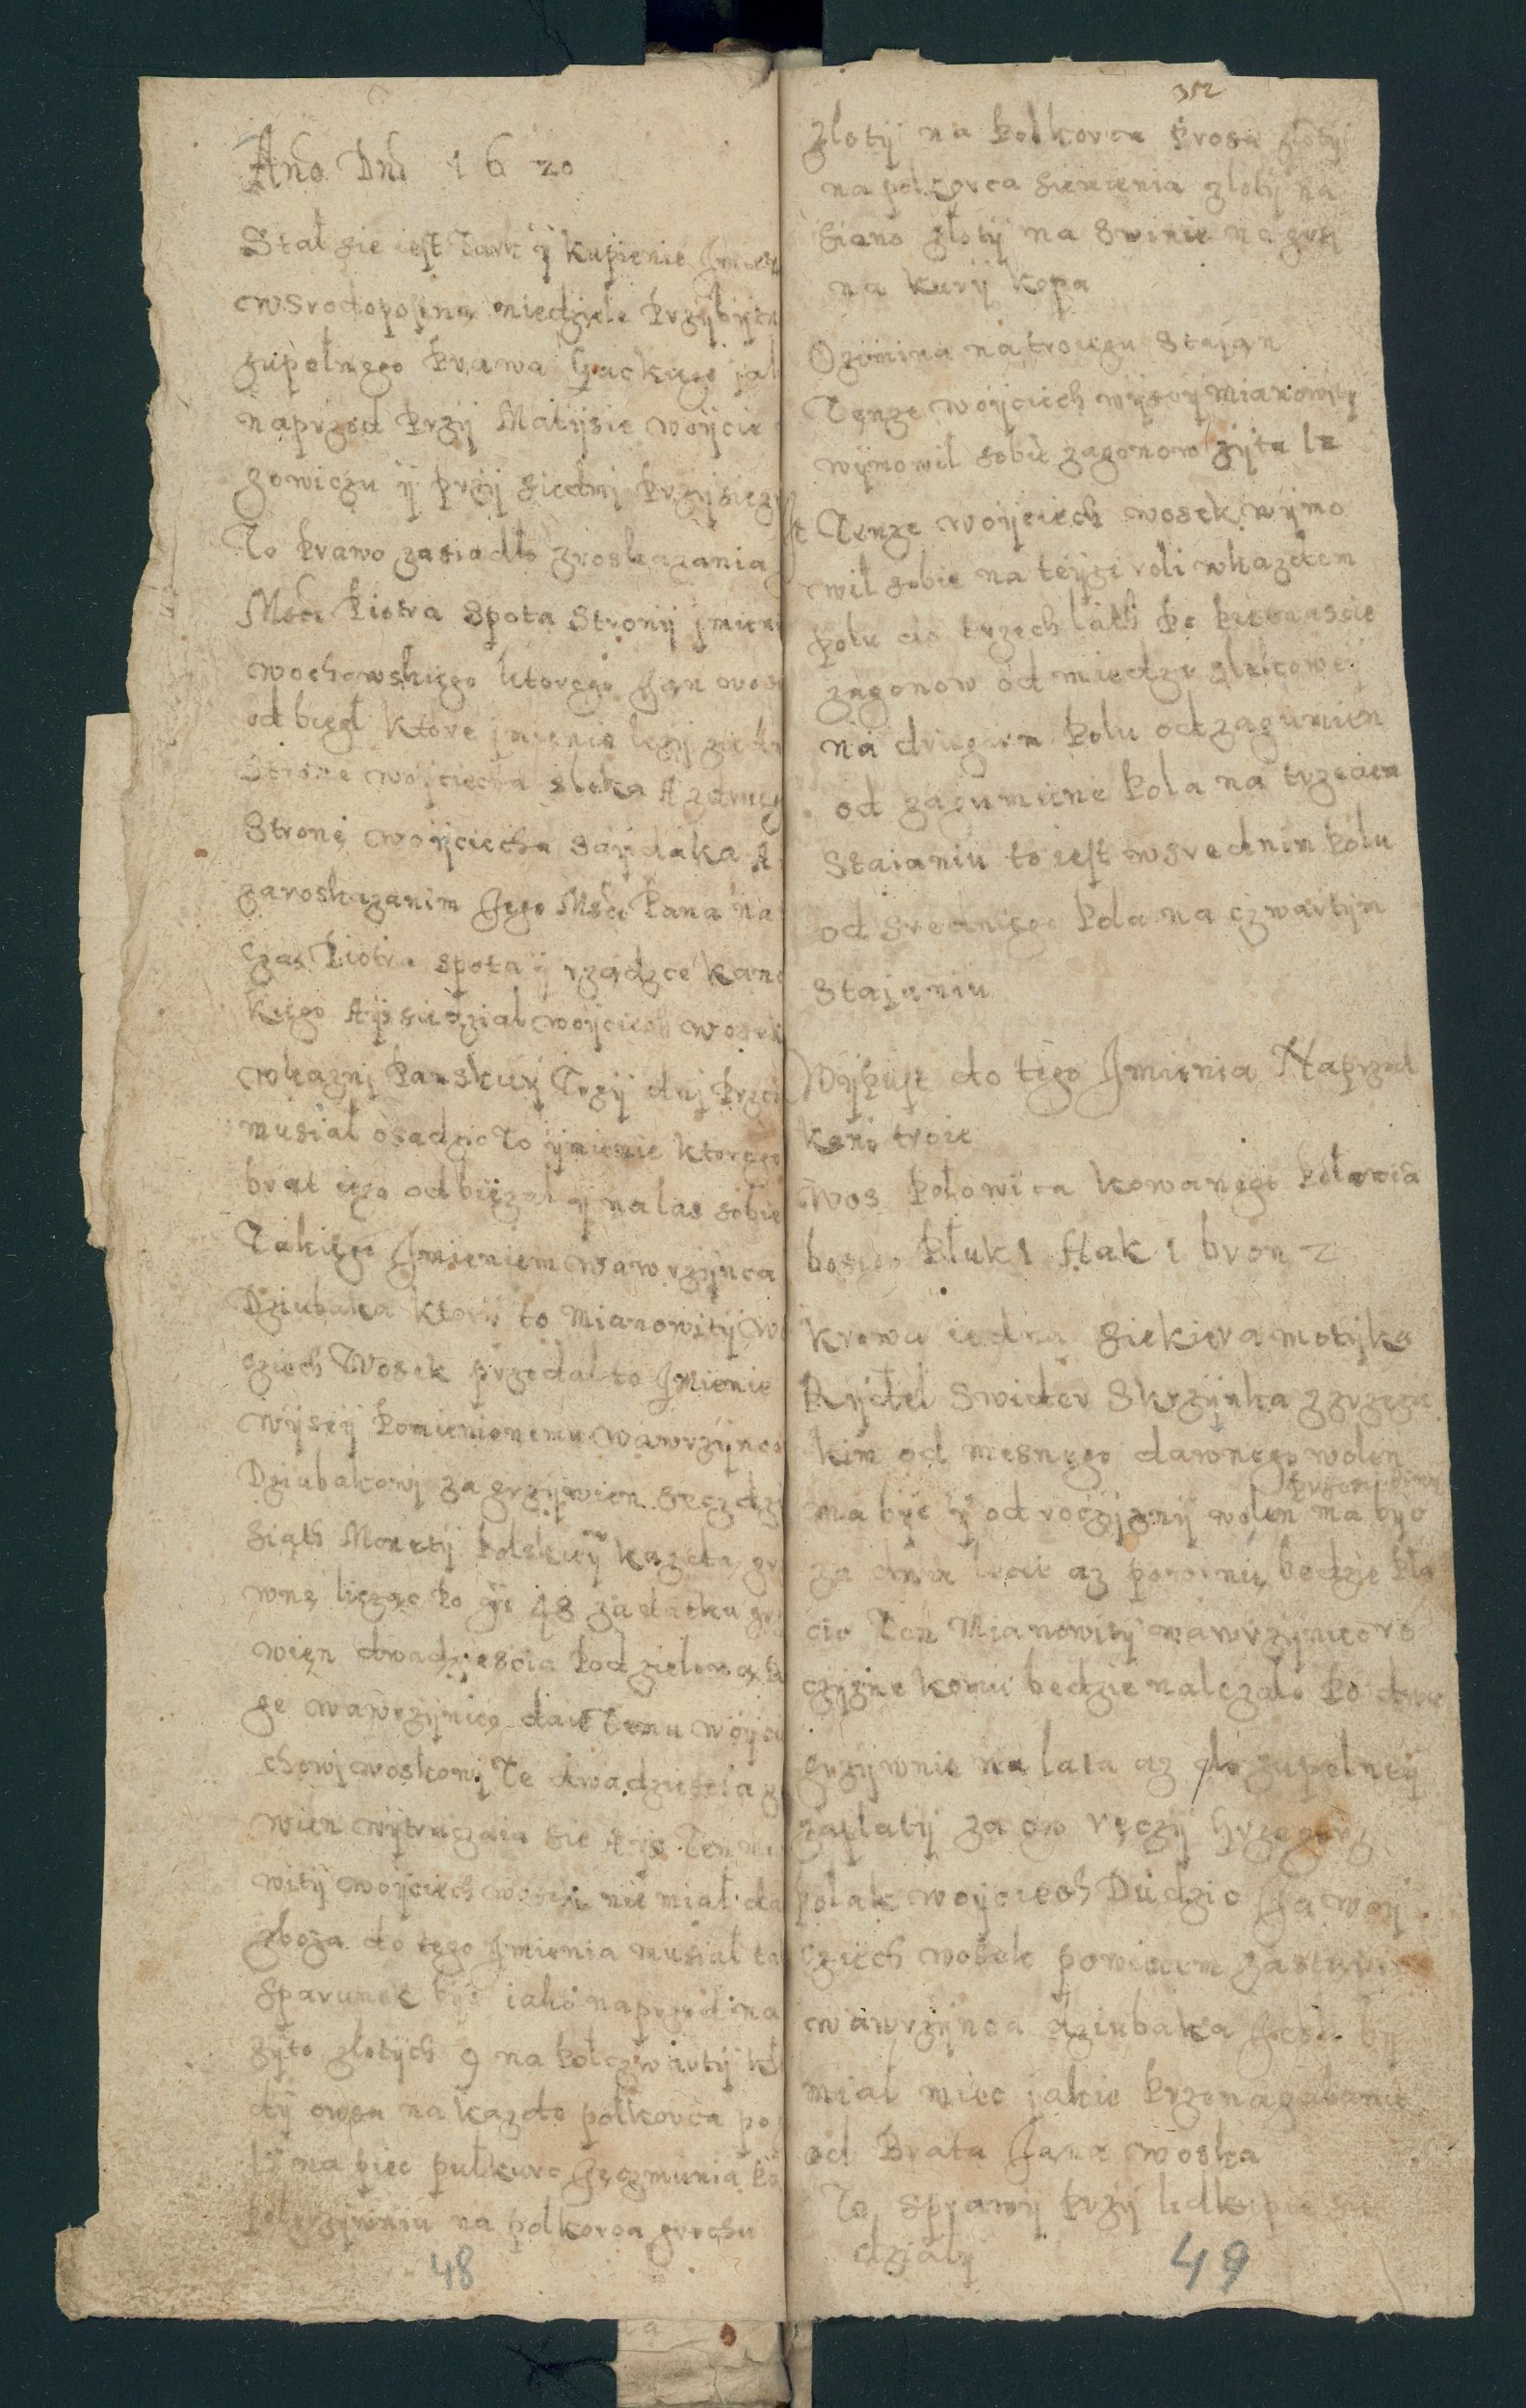 Ano Dni 1620
Stał sie iest Tark ÿ kupienie
wsrodoposna niedziele Prziybyta
zupełnego Prawa Gackiego jak
naprzod Przÿ Matÿsie woÿcie
gowiczu ÿ przÿ siedmj Przÿsiezn
To Prawo zasiadło zroskazania
Mści Piotra Spota Stronÿ jmieni
wochowskiego ktorego Jan wose
odbiegł ktore jmienie lezÿ ziedn
Strone woÿciecha sleka A zdrugi
Strone woÿciecha Saÿdaka A
zaroskazanim Jego Mści Pana na
czas Piotra spota ÿ rządzce
kiego Aÿs siedział woÿciech wosek
wkaznj Panskieÿ Trzÿ dnj Przeci
musiał osadzic to ÿmienie ktorego
brat iego odbiezał ÿ nalas sobie
Takiego Jmieniem wawrzÿnca
Dziubaka ktorÿ to Mianowitÿ wo
cziech Wosek przedał to Jmienie
wÿseÿ Pomienionemu wawrzÿnco
Dziubakowj za grzÿwien secz dzi
siąth Monetÿ Polskieÿ kazda grz
wne licząc Po gr 48 zadatku grz
wien dwadziescia Pod
ze wawrzÿniec daie Temu woÿci
chowj woskowj Te dwadziescia g
wien wÿtracaia sie Aże Ten mia
witÿ woÿciech wosek nie miał da
zboza do tego Jmienia musiał ta
sparunek bÿc iako naprzod na
zÿto złotÿch 9 na Połczwartÿ kł
dÿ owsa na kazde połkorca po
na piec pułkorc Jęczmienia Po
połgrzÿwniu na połkorca grochu
48
352
złotÿ na Połkorca Prosa złotÿ
na połkorca siemienia złotÿ na
siano złotÿ na swinie na
na kurÿ kopa
Ozimina na troiegu Staian
Tenze woÿciech wÿseÿ mianowitÿ
wÿmowił sobie zagonow zÿta 12
Tenze woÿciech wosek wÿmo
wił sobie na teÿze roli wkazdem
polu do trzech lath Po Pietnascie
zagonow od miedze slekoweÿ
na drugiem Polu od zagumien
od zagumiene Pola na trzeciem
Staianiu to iest wsrednim Polu
od sredniego Pola na czwartÿm
Staianiu
Wÿpust do tego Jmienia Naprzod
koni troie
Wos Połowica kowanego Połowica
bosego Płuk 1 Hak 1 bron 2
krowa iedna siekiera motÿka
Rÿdel Swider Skrzÿnka
kim od mesnego dawnego wolen
ma bÿc ÿ od roczÿznÿ wolen ma bÿc
za dwie lecie az potÿm bedzie Pła
cic Ten Mianowitÿ wawrzÿniec ro
czÿzne komu bedzie nalezało Po dwie
grzÿwnie na lata az do zupełneÿ
zapłatÿ za co reczÿ Grzegorz
Polak woÿciech Dudzic Ja woÿ
cziech wosek powinem zastawic
wawrzÿnca dziubaka Jesli bÿ
miał miec jakie Przenagabanie
od Brata Jana woska
Te sprawÿ Przÿ lidkupie sie
działÿ
49